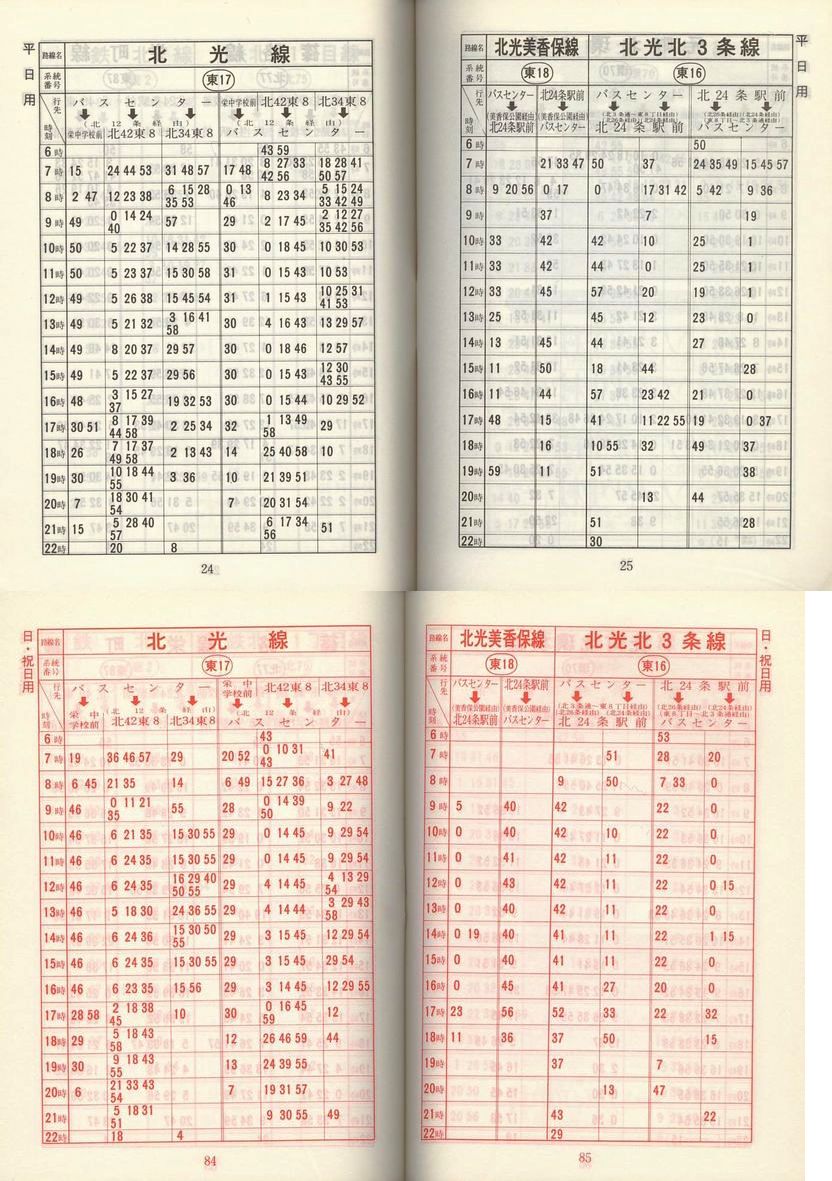 平日用
路線名 北光線
系統番号 東17
行先 バスセンター 栄中学校前 北42東8 北34東8
(北12条経由)
時刻 栄中学校前 北42東8 北34東8 バスセンター
(北12条経由)
6時 43 59
7時 15 24 44 53 31 48 57 17 48 8 27 33 42 56 18 28 41 50 57
8時 2 47 12 23 38 6 15 28 35 53 0 13 46 8 23 34 5 15 24 33 42 49
9時 49 0 14 24 40 57 29 2 17 45 2 12 27 35 42 56
10時 50 5 22 37 14 28 55 30 0 18 45 10 30 53
11時 50 5 23 37 15 30 58 31 0 15 43 10 53
12時 49 5 26 38 15 45 54 31 1 15 43 10 25 31 41 53
13時 49 5 21 32 3 16 41 58 30 4 16 43 13 29 57
14時 49 8 20 37 29 57 30 0 18 46 12 57
15時 49 5 22 37 29 56 30 0 15 43 12 30 43 55
16時 48 3 15 27 37 19 32 53 30 0 15 44 10 29 52
17時 30 51 8 17 39 44 58 2 25 34 32 1 13 49 58 29
18時 26 7 17 37 49 58 2 13 43 14 25 40 58 10
19時 30 10 18 44 55 3 36 10 21 39 51
20時 7 18 30 41 54 7 20 31 54
21時 15 5 28 40 57 6 17 34 56 51
22時 20 8
24
平日用
路線名 北光美香保線 北光北3条線
系統番号 東18 東16
行先 バスセンター 北24条駅前 バスセンター 北24条駅前
時刻 (美香保公園経由) 北24条駅前 (美香保公園経由) バスセンター 北24条駅前 バスセンター
6時 50
7時 21 33 47 50 37 24 35 49 15 45 57
8時 9 20 56 0 17 0 17 31 42 5 42 9 36
9時 37 7 19
10時 33 42 42 10 25 1
11時 33 42 44 0 25 1
12時 33 45 57 20 19 1
13時 25 45 45 12 23 0
14時 13 45 44 27
15時 11 50 18 44 28
16時 11 44 57 23 42 21 0
17時 48 15 41 11 22 55 19 0 37
18時 16 10 55 32 49 37
19時 59 11 51 38
20時 13 44
21時 51 28
22時 30
25
日・祝日用
路線名 北光線
系統番号 東17
行先 バスセンター 栄中学校前 北42東8 北34東8
(北12条経由)
時刻 栄中学校前 北42東8 北34東8 バスセンター
(北12条経由)
6時 43
7時 19 36 46 57 29 20 52 0 10 31 43 41
8時 6 45 21 35 14 6 49 15 27 36 3 27 48
9時 46 0 11 21 35 55 28 0 14 39 50 9 22
10時 46 6 21 35 15 30 55 29 0 14 45 9 29 54
11時 46 6 24 35 15 30 55 29 0 14 45 9 29 54
12時 46 6 24 35 16 29 40 50 55 29 4 14 45 4 13 29 54
13時 46 5 18 30 24 36 55 29 4 14 44 3 29 43 58
14時 46 6 24 36 15 30 50 55 29 3 15 45 12 29 54
15時 46 6 24 35 15 30 55 29 3 15 45 29 54
16時 46 6 23 35 15 56 29 3 14 45 12 29 55
17時 28 58 2 18 38 45 10 30 0 16 45 59 12
18時 29 5 18 43 58 12 26 46 59 44
19時 30 9 18 43 55 13 24 39 55
20時 6 21 33 43 54 7 19 31 57
21時 5 18 31 51 9 30 55 49
22時 18 4
84
日・祝日用
路線名 北光美香保線 北光北3条線
系統番号 東18 東16
行先 バスセンター 北24条駅前 バスセンター 北24条駅前
時刻 (美香保公園経由) 北24条駅前 (美香保公園経由) バスセンター 北24条駅前 バスセンター
6時 53
7時 51 28 20
8時 9 50 7 33 0
9時 5 40 42 22 0
10時 0 40 42 10 22 0
11時 0 41 42 11 22 0
12時 0 43 42 11 22 0 15
13時 0 40 42 11 22 0
14時 0 19 40 41 11 22 1 15
15時 0 40 41 11 22 0
16時 0 45 41 27 20 0
17時 23 56 52 33 22 32
18時 11 36 37 50 15
19時 37 7
20時 13 47
21時 43 22
22時 29
85